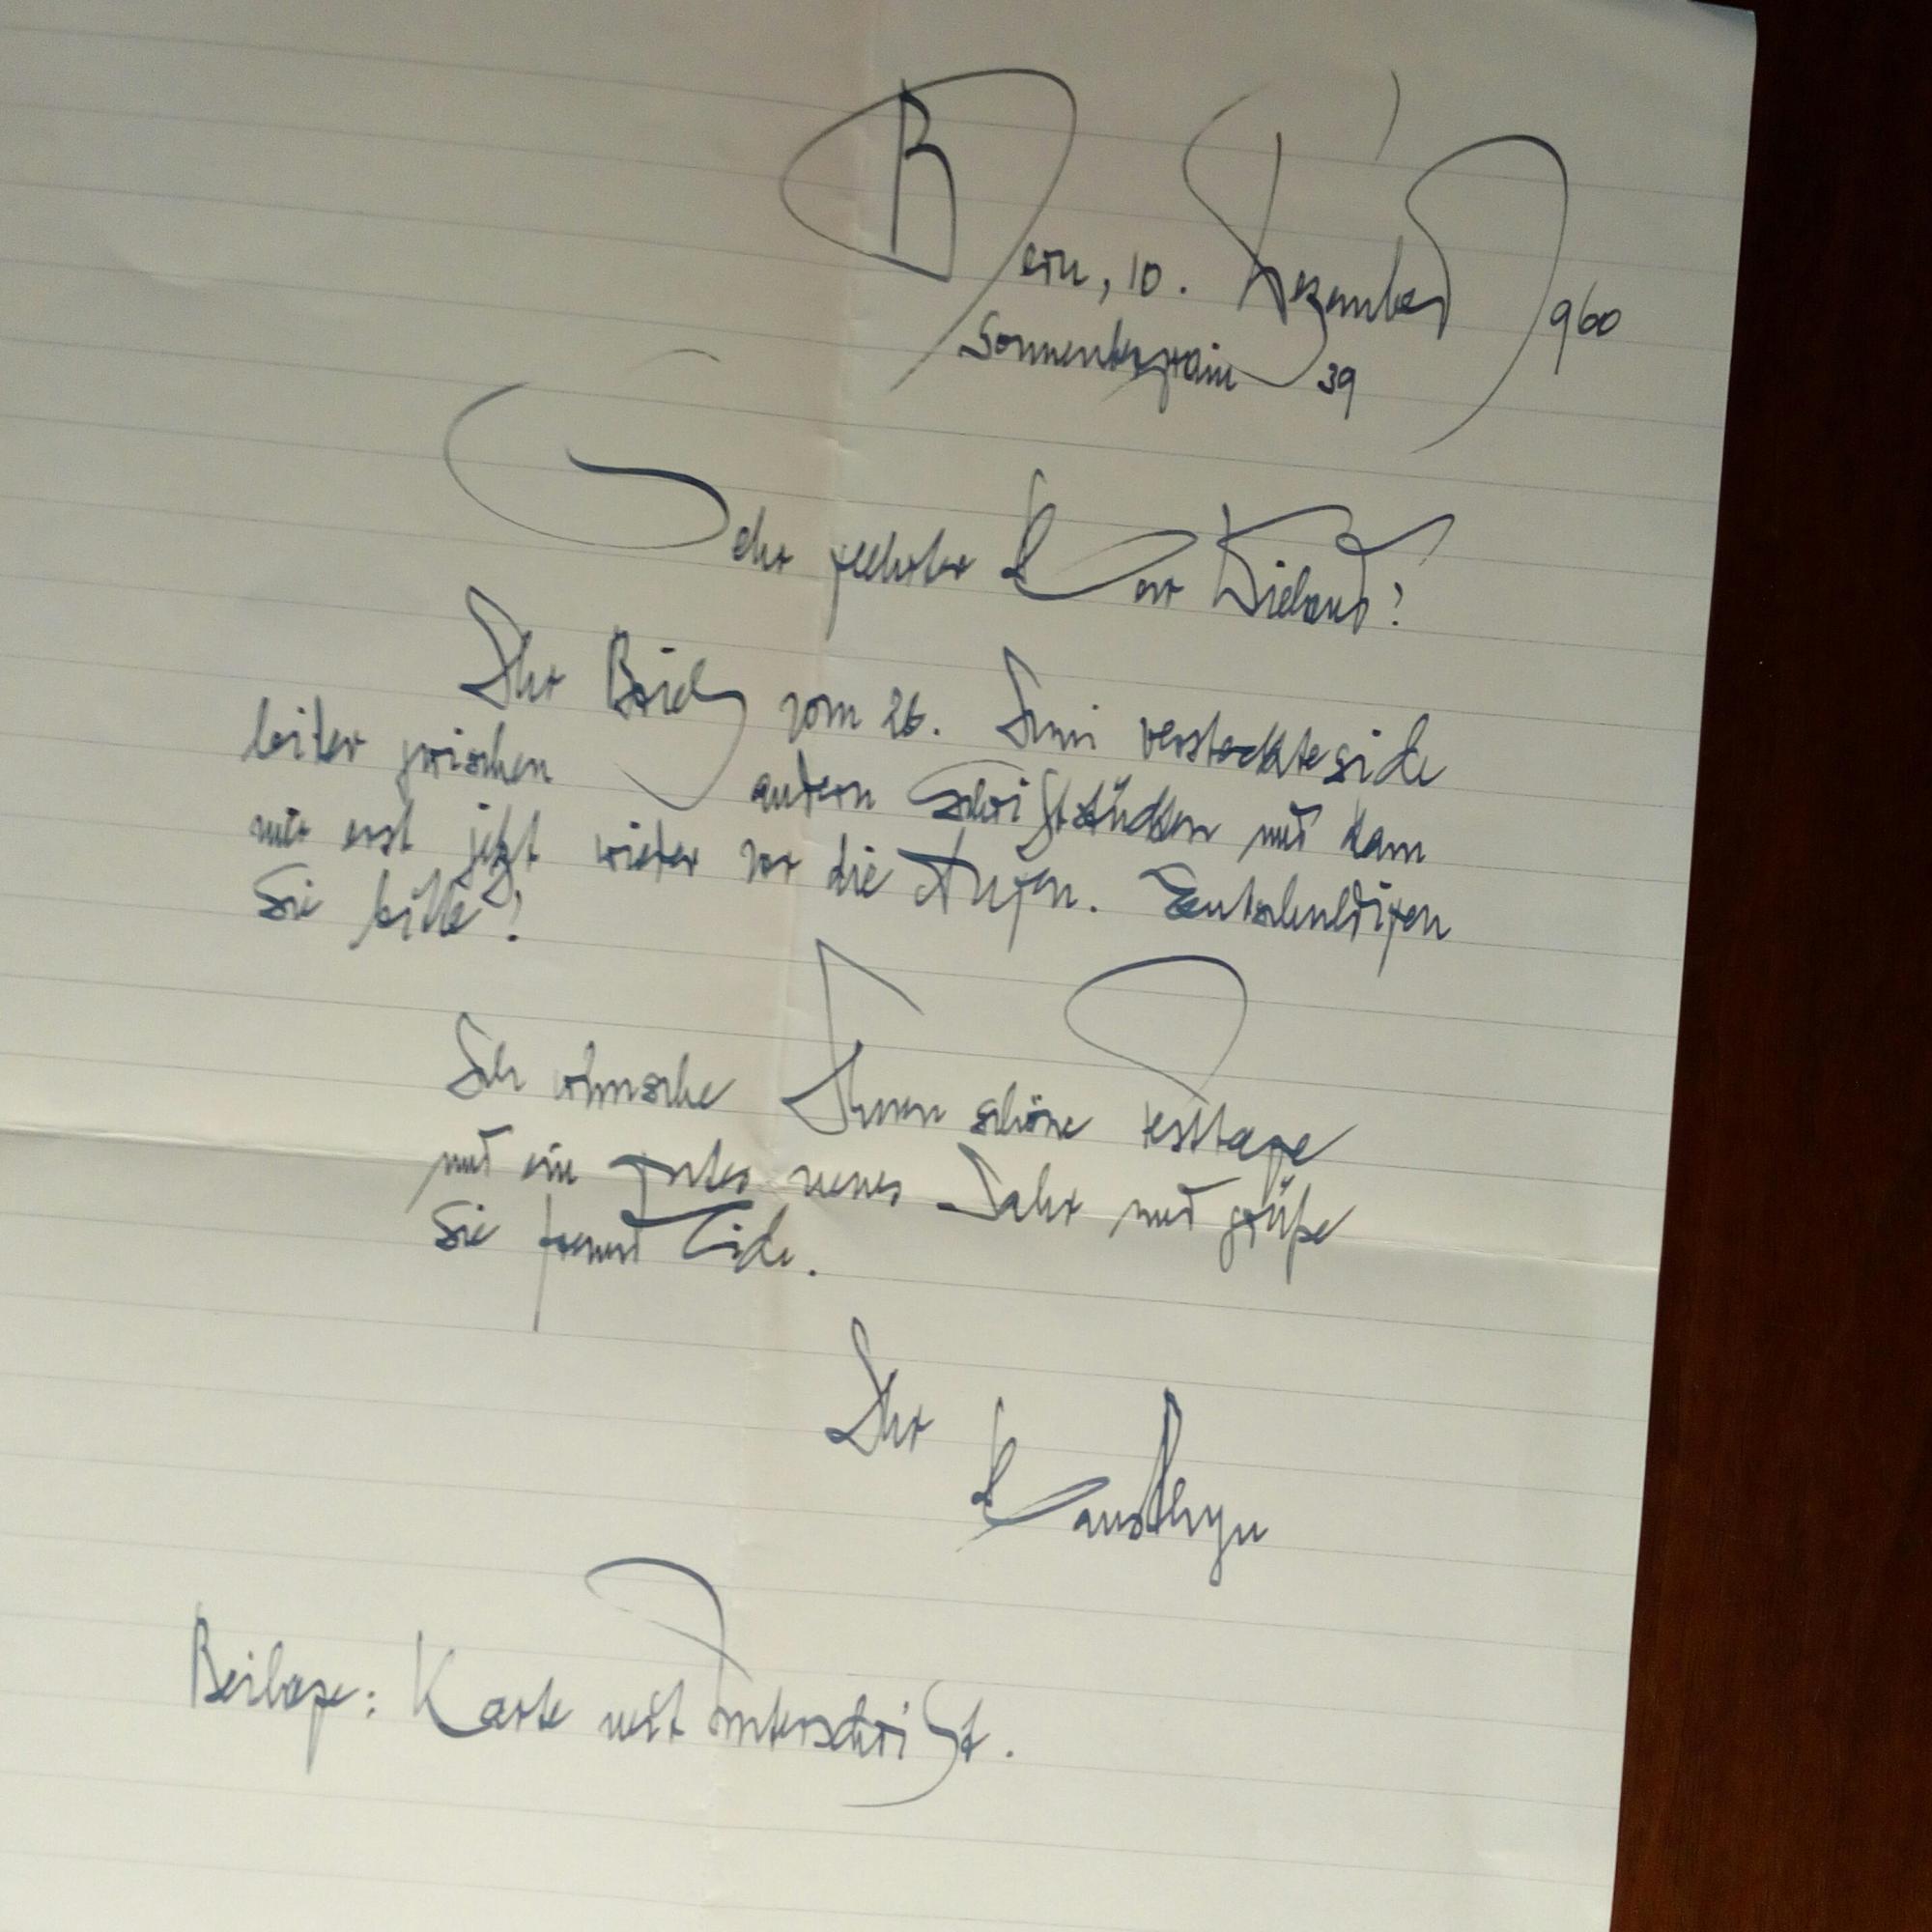 Bern, 10. Dezember 1960
Sonnenbergrain 39
Sehr geehrter Herr Wieland!
Ihr Brief vom 26. Juni versteckte sich
leider zwischen andern Schriftstücken und kam
mir erst jetzt wieder vor die Augen. Entschuldigen
Sie bitte!
Ich wünsche Ihnen schöne Festtage
und ein gutes neues Jahr und grüße
Sie freundlich.
Ihr
Beilage: Karte mit Unterschrift.